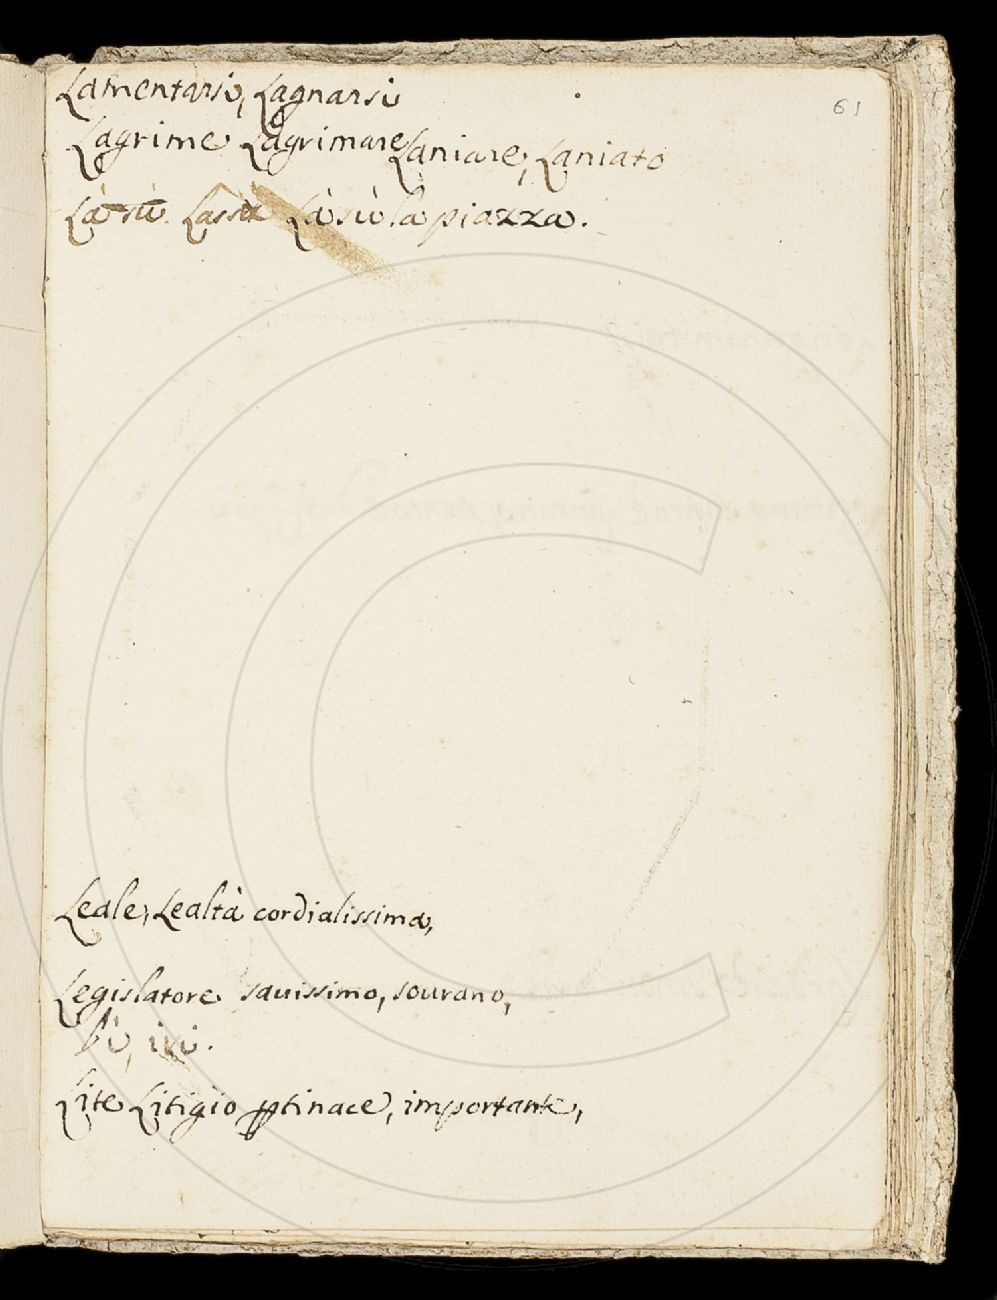 61
Lamentarsi, Lagnarsi
Lagrime Lagrimare Laniare, Laniato
Là sù. Lassù Là sù la piazza.
Leale, Lealtà cordialissima,
Legislatore sauissimo, sourano,
lì, iui.
Lite Litigio ptinace, importante,